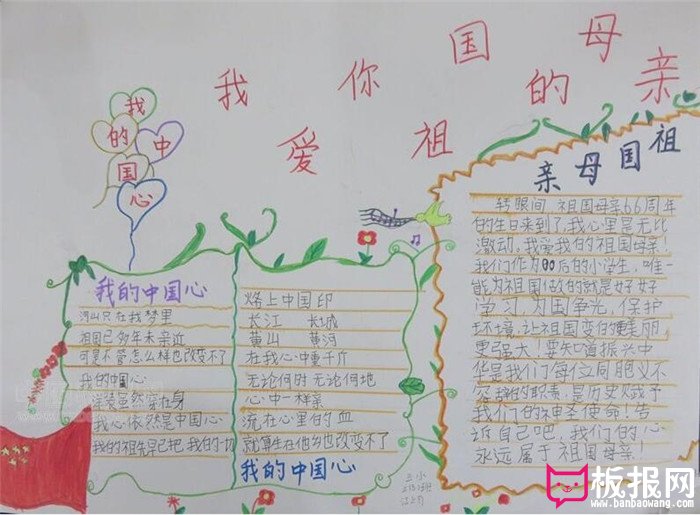 我爱你祖国的母亲
我的中国心
我的中国心
河山只在我梦里
祖国已多年未亲近
可是不管怎么样也改变不了
我的中国心
洋装虽然穿在身
我心依然是中国心
我的祖先早已把我的一切
烙上中国印
长江 长城
黄山 黄河
在我心中重千斤
无论何时 无论何地
心中一样亲
流在心里的血
就算生在他乡也改变不了
我的中国心
亲母国祖
转眼间,祖国母亲66周年
的生日来到了,我心里是无比
激动,我爱我的祖国母亲!
我们作为00后的小学生,唯一
能为祖国做的就是好好
学习,为国争光,保护
环境,让祖国变的美丽
更强大!要知道振兴中
华是我们每位同胞义不
容辞的职责,是历史赋予
我们的神圣使命!告
诉自己吧,我们的心
永远属于祖国母亲!
板报网
www.banbaowang.com